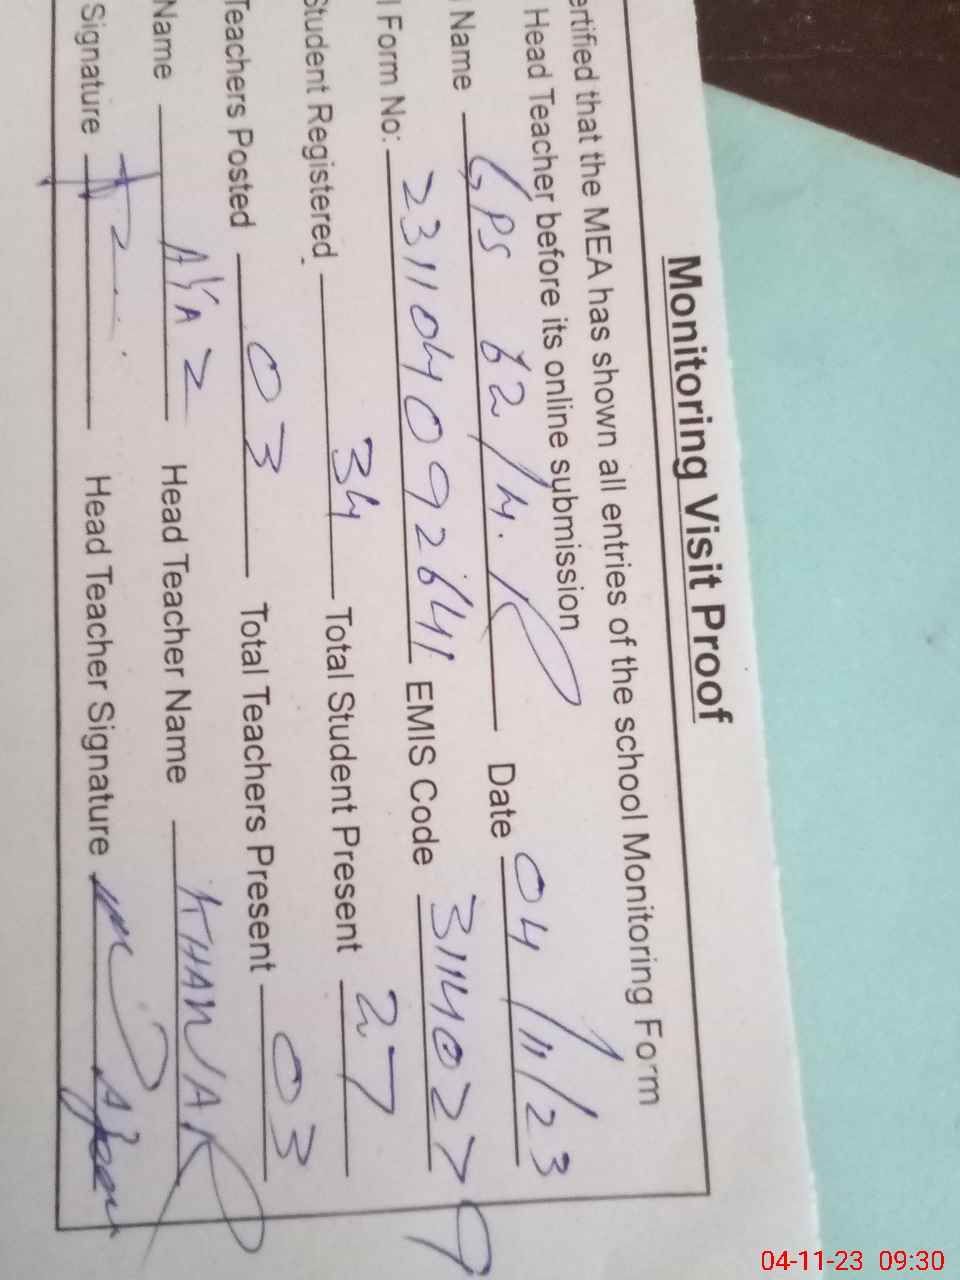 Monitoring Visit Proof
ertified that the MEA has shown all entries of the school Monitoring Form
Head Teacher before its online submission
Name GPS 62/4.R Date 04/11/23
l Form No: 231104092641 EMIS Code
Student Registered 34 Total Student Present 27
Teachers Posted 03 Total Teachers Present 03
Name AYAZ Head Teacher Name
Signature Head Teacher Signature
04-11-23 09:30